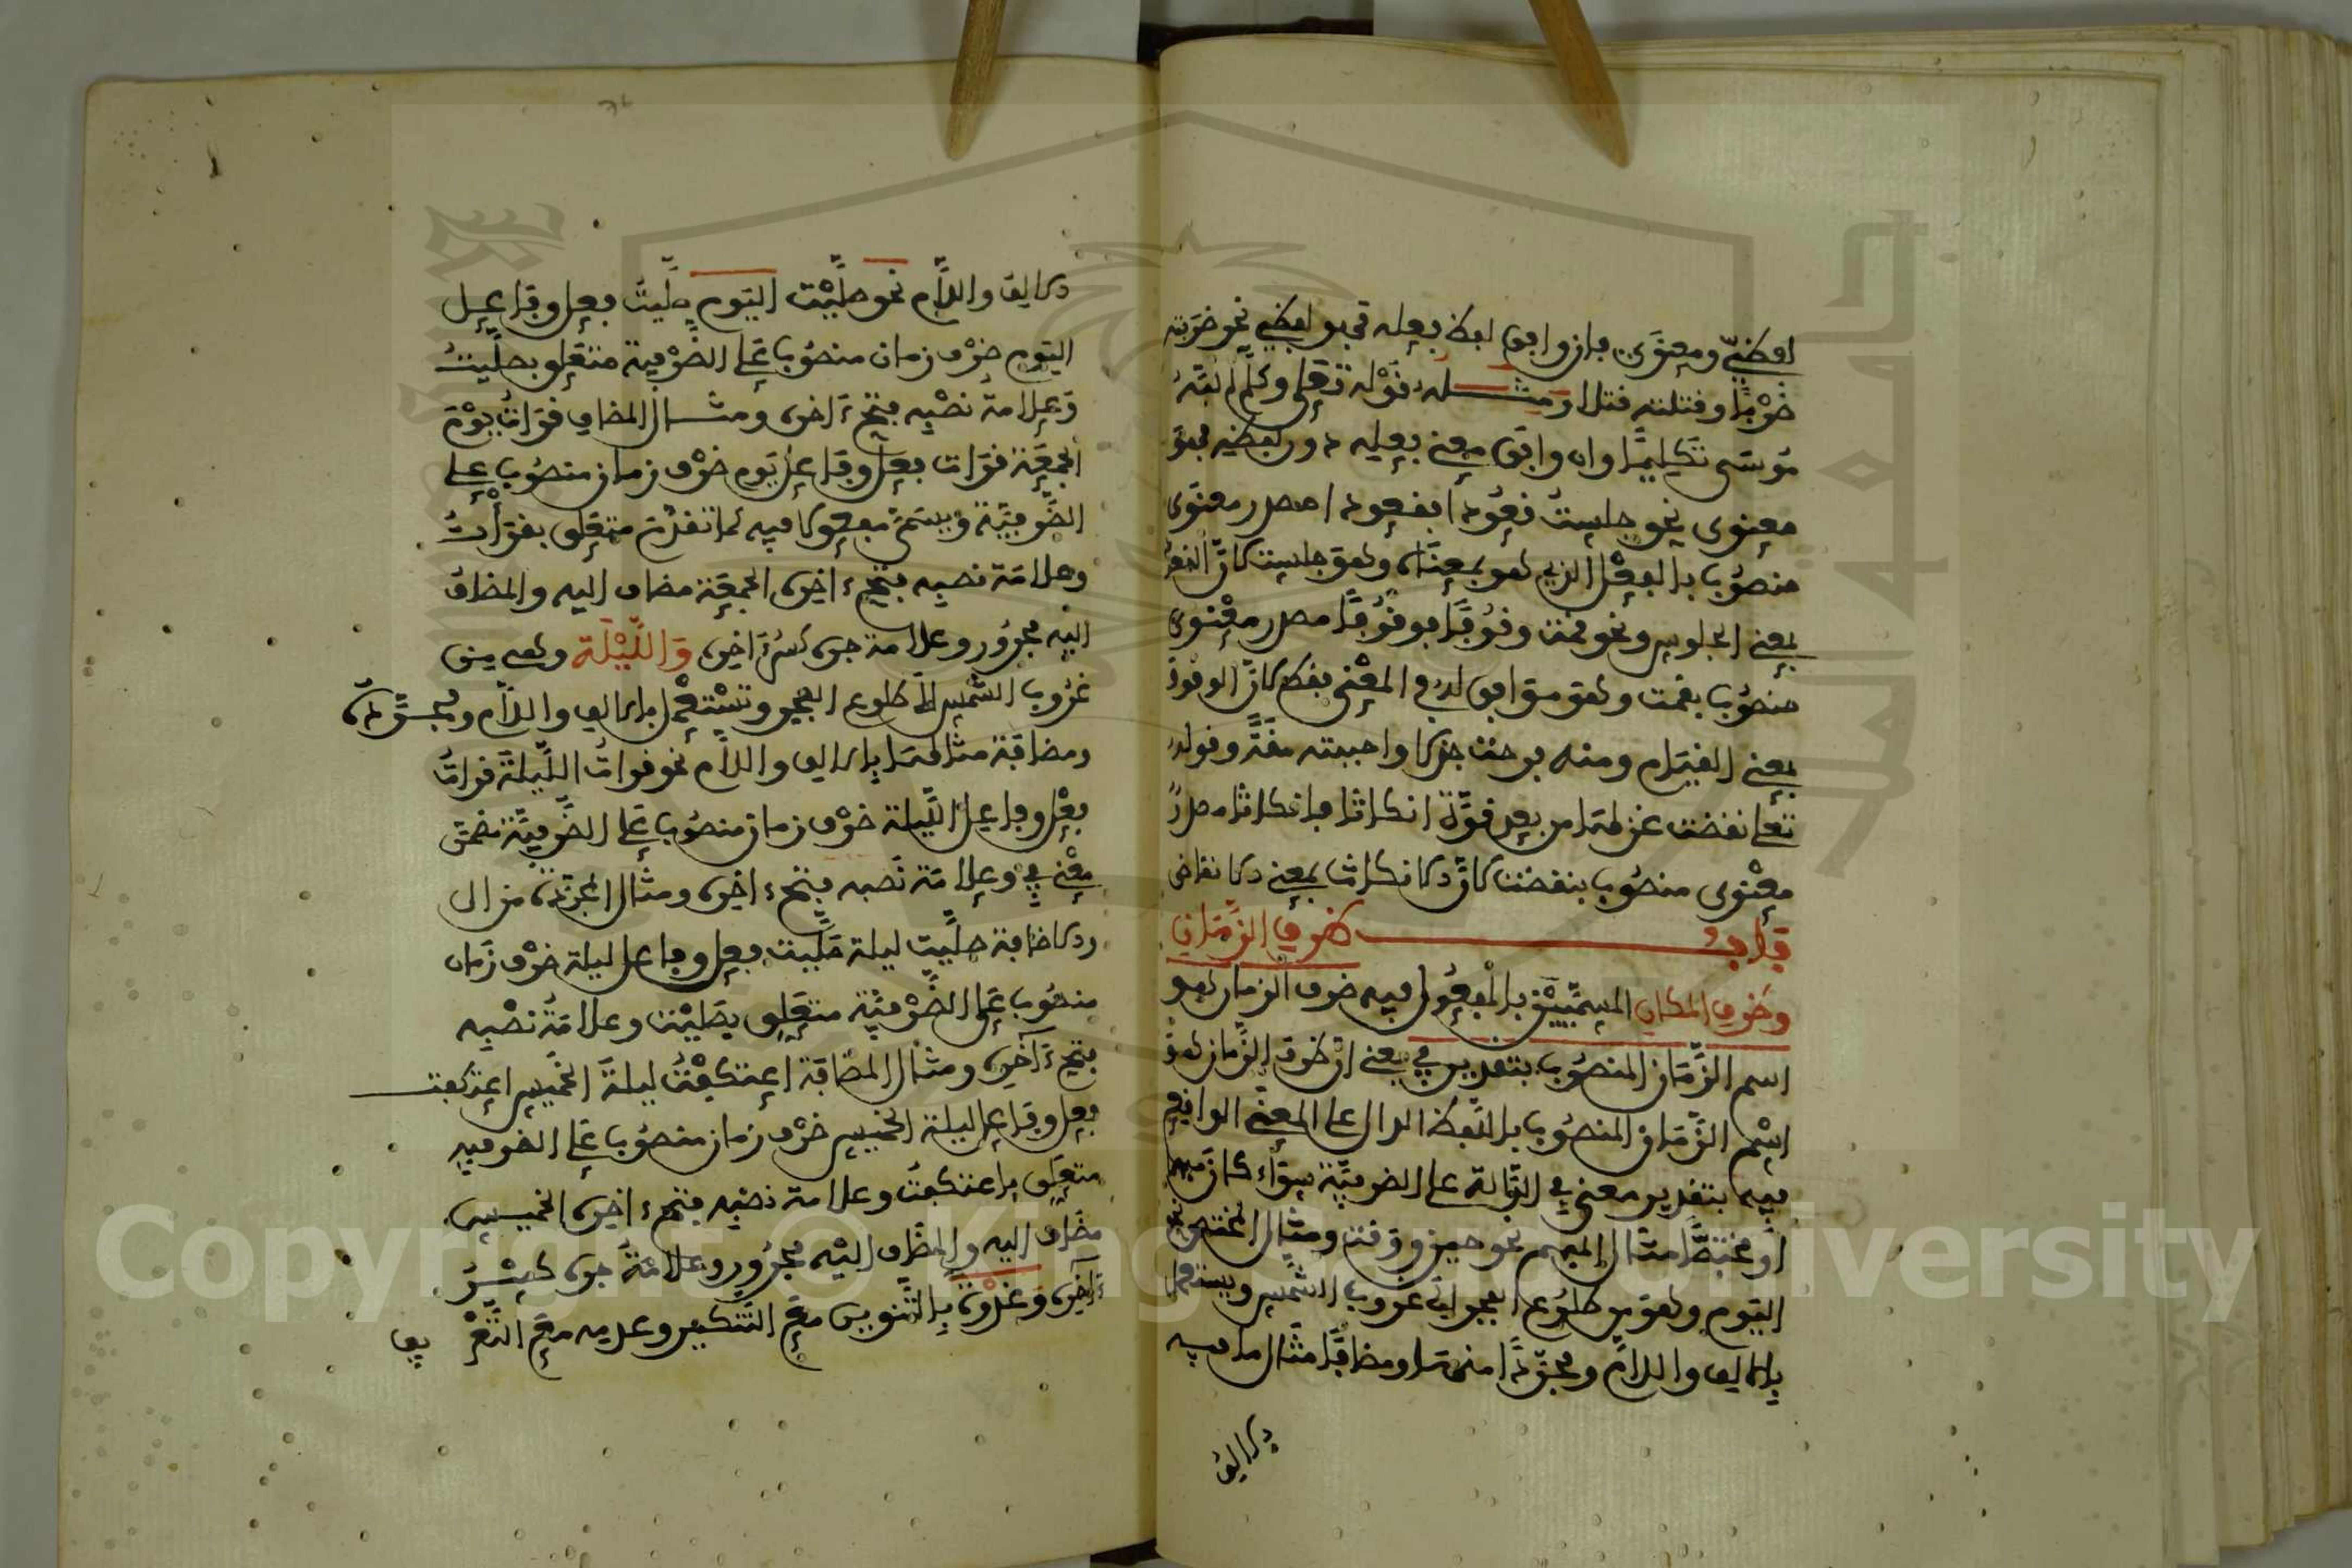 لفظيّ ومعنوي فإن وافق لفظ فعله فهو لفظي نحو ضربته
ضربًا وقتلته قتلا ومثله قوله تعلى وكلّم الله
موسى تكليمًا وان وافق معنى فعله دون لفظه فهو
معنوي نحو جلست قعودا فقعودا مصدر معنوي
منصوب بالفعل الذي هو بمعناه وهو جلست لأنّ القعود
بمعنى الجلوس ونحو قمت وقوفًا فوقوفًا مصدر معنوي
منصوب بقمت وهو موافق له في المعنى فقط لأنّ الوقوف
بمعنى القيام ومنه فرحت جذلا واحببته مقة وقوله
تعلى نقضت غزلها من بعد قوّة انكاثا فانكاثا مصدر
معنوي منصوب بنقضت لأنّ الانكاث بمعنى الانقاض
باب ظرف الزمان
وظرف المكان المسمّيين بالمفعول فيه ظرف الزمان هو
اسم الزّمان المنصوب بتقدير في يعني انّ ظرف الزّمان هو
اسم الزّمان المنصوب باللّفظ الدال على المعنى الواقع
فيه بتقدير معنى في الدّالة على الظرفيّة سواء كان مبهما
أو مختصًّا مثال المبهم نحو حين ووقت ومثال المختص نحو
اليوم وهو من طلوع الفجر إلى غروب الشّمس ويستعمل
بالالف واللام ومجرّدا منهما ومضافًا مثال ما فيه
بالالف
الالف واللّام نحو صلّيت اليوم صلّيت فعل وفاعل
اليوم ظرف زمان منصوب على الظّرفية متعلق بصلّيت
وعلامة نصبه فتح ءاخره ومثال المضاف قرأت يوم
الجمعة قرات فعل وفاعل يوم ظرف زمان منصوب على
الظّرفيّة ويسمّى مفعولا فيه كما تقدّم متعلق بقرأت
وعلامة نصبه فتح ءاخره الجمعة مضاف اليه والمضاف
اليه مجرور وعلامة جره كسر ءاخره وَاللَّيْلَةَ وهي من
غروب الشّمس الى طلوع الفجر وتستعمل بالالف واللّام ومجرّدة
ومضافة مثالها بالالف واللّام نحو قرأت اللّيلة قرات
فعل وفاعل اللّيلة ظرف زمان منصوب على الظّرفيّة تضمن
معنى في وعلامة نصبه فتح ءاخره ومثال المجرّدة من ال
والاضافة صلّيت ليلة صلّيت فعل وفاعل ليلة ظرف زمان
منصوب على الظّرفيّة متعلق بصلّيت وعلامة نصبه
فتح ءاخره ومثال المضافة اعتكفت ليلة الخميس اعتكفت
فعل وفاعل ليلة الخميس ظرف زمان منصوب على الظرفيه
متعلق باعتكفت وعلامة نصبه فتح ءاخره الخميس
مضاف اليه والمضاف اليه مجرور وعلامة جره كسر
ءاخره وغدوة بالتّنوين مع التّنكير وعدمه مع التّعر
يف
Copyright © King Saud University